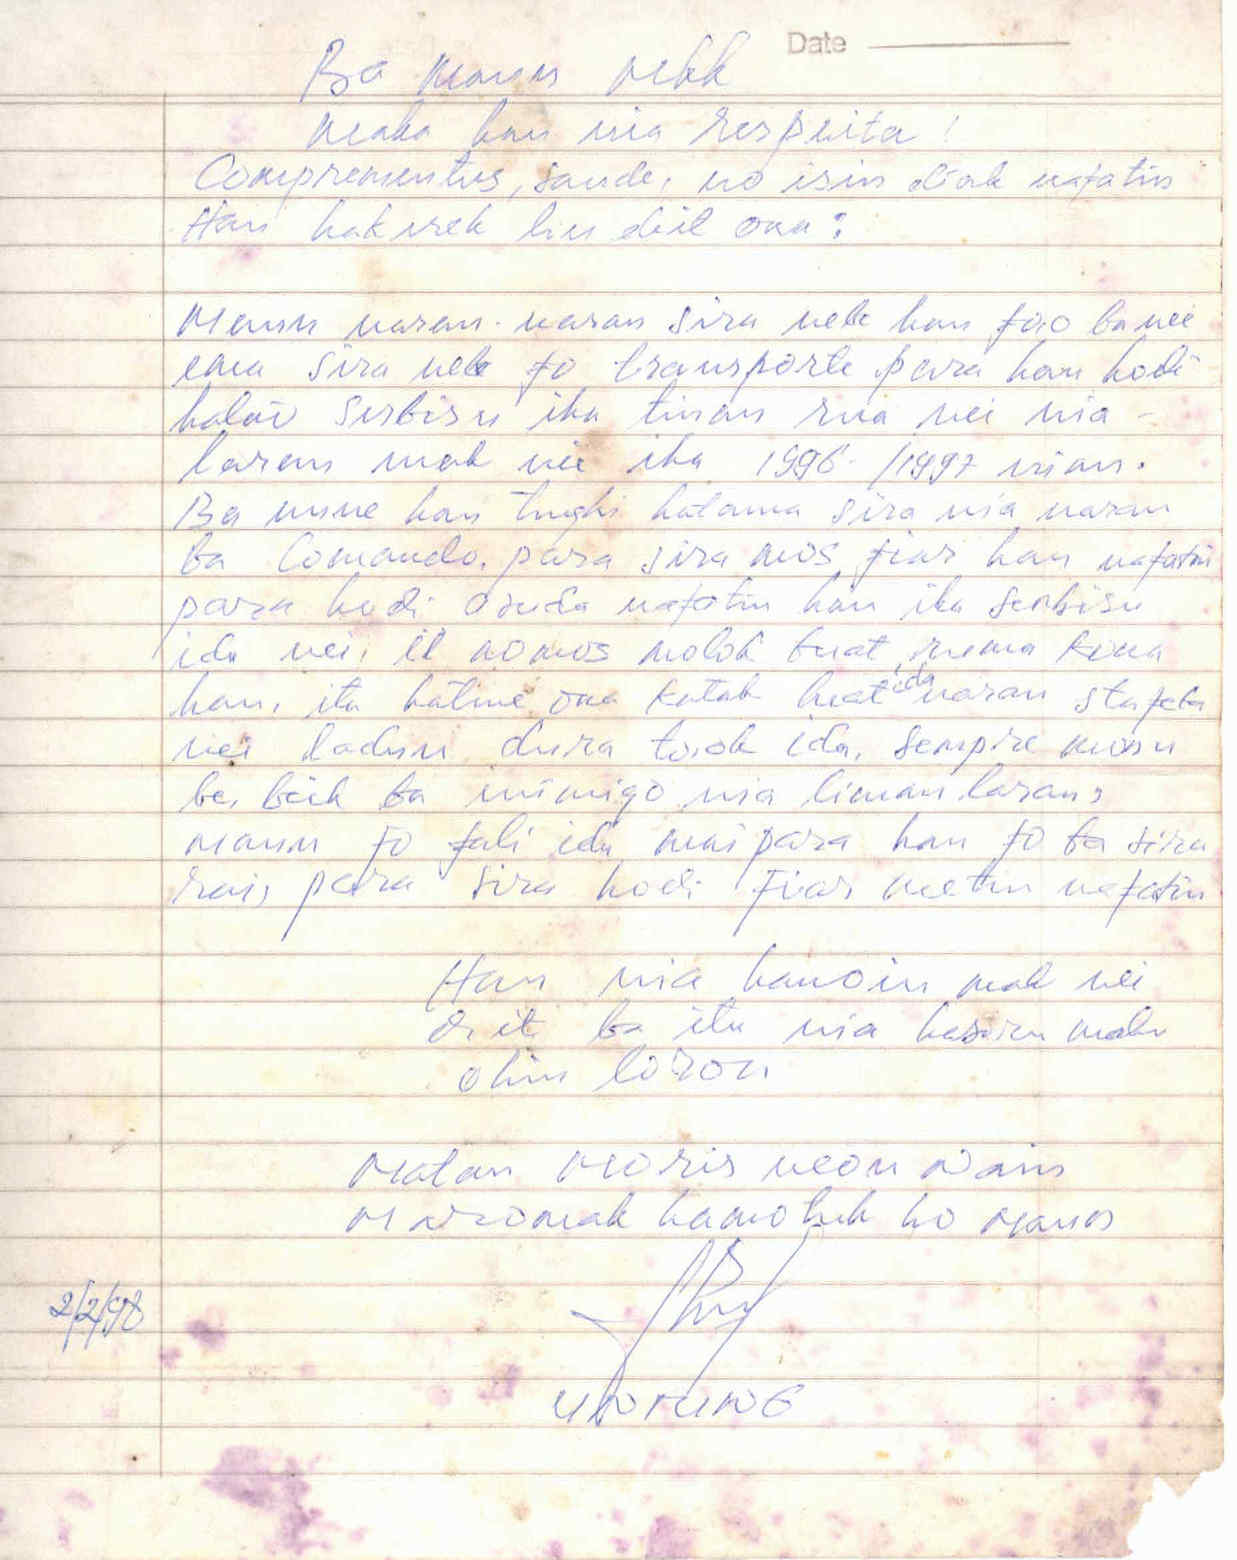 Date
Ba Maun
Maka hau nia respeita!
Comprementus, saude, no isin diak nafatin
Hau hakerek lia
Maun naran-naran sira nebe hau fao ba nei
ema sira nebe fo transporte para hau hodi
halao serbisu iha tinan rua nei nia -
laran mak nei iha 1996-/1997 nian.
Ba mine hau hatama sira nia naran
ba Comando, para sira mos fiar hau nafatin
para hodi ajuda nafatin hau iha serbisu
ida nei, molok buat
hau, ita hatene ona katak buat ida naran stafeta
nei ladun dura ida, sempre monu
be, beik ba inimigo nia liman laran,
Maun fo fali ida mai para hau fo ba sira
rai, para sira hodi fiar metin nafatin
Hau nia hanoin mak nei
deit ba ita nia hasoru malu
ohin loron
Matan Moris neon Nain
Maromak hamotuk ho Maun
2/2/98
UNTUNG